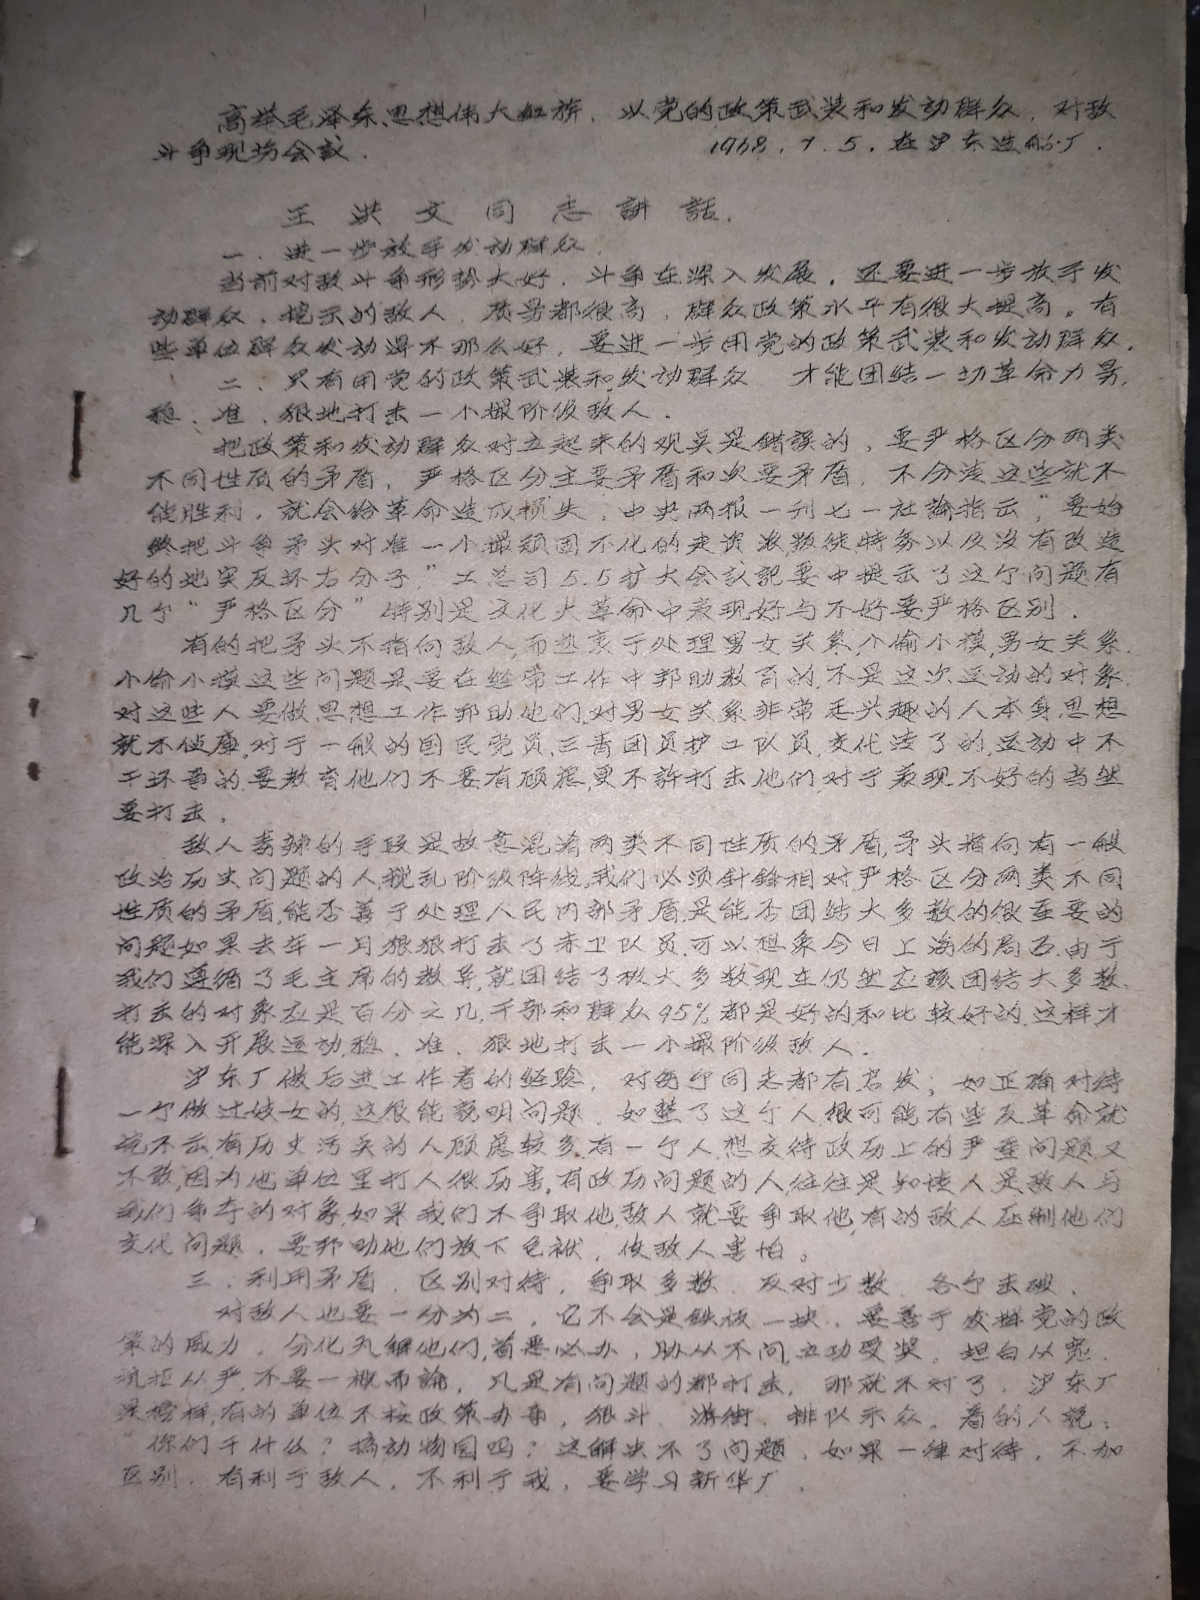 高举毛泽东思想伟大红旗，以党的政策武装和发动群众，对敌
斗争现场会议． 1968．7．5．在沪东造船厂．
王洪文同志讲話．
一．进一步放手发动群众．
当前对敌斗争形势大好．斗争在深入发展，还要进一步放手发
动群众，挖示的敌人，质量都很高，群众政策水平有很大提高。有
些单位群众发动得不那么好，要进一步用党的政策武装和发动群众．
二．只有用党的政策武装和发动群众 才能团结一切革命力量，
稳．准．狠地打击一小撮阶级敌人．
把政策和发动群众对立起来的观点是錯誤的，要严格区分两类
不同性质的矛盾，严格区分主要矛盾和次要矛盾．不分清这些就不
能胜利，就会给革命造成损失．中央两报一刊七一社論指示，“要始
終把斗争矛头对准一小撮頑固不化的走资派，叛徒特务以及没有改造
好的地富反坏右分子．”工总司5.5扩大会议記要中提示了这个问题有
几个“严格区分”特别是文化大革命中表现好与不好要严格区别．
有的把矛头不指向敌人，而热衷于处理男女关系，小偷小摸，男女关系．
小偷小摸这些问题是要在经常工作中帮助教育的，不是这次运动的对象．
对这些人要做思想工作帮助他们，对男女关系非常感兴趣的人本身思想
就不健康，对于一般的国民党员，三青团员护工队员，交代清了的，运动中不
干坏事的，要教育他们不要有顾慮更不許打击他们，对于表现不好的当然
要打击．
敌人毒辣的手段是故意混淆两类不同性质的矛盾，矛头指向有一般
政治历史问题的人搅乱阶级阵线，我们必须針鋒相对严格区分两类不同
性质的矛盾，能否善于处理人民内部矛盾，是能否团结大多数的很重要的
问题如果去年一月狠狠打击了赤卫队员，可以想象今日上海的局面．由于
我们遵循了毛主席的教导，就团结了极大多数现在仍然应該团结大多数．
打击的对象应是百分之几，干部和群众95%都是好的和比较好的，这样才
能深入开展运动，稳．准．狠地打击一小撮阶级敌人．
沪东厂做后进工作者的经验．对每个同志都有启发；如正确对待
一个做过妓女的，这很能説明问题．如整了这个人很可能有些反革命就
说不示有历史污点的人顾慮较多，有一个人想交待政历上的严重问题又
不敢，因为他单位里打人很历害，有政历问题的人，往往是知情人是敌人与
我们争夺的对象，如果我们不争取他，敌人就要争取他，有的敌人压制他们
交代问题．要帮助他们放下包袱，使敌人害怕。
三．利用矛盾．区别对待，争取多数．反对少数．各个击破．
对敌人也要一分为二，它不会是鉄板一块．要善于发挥党的政
策的威力．分化瓦解他们，首恶必办，胁从不问，立功受奖．坦白从宽．
抗拒从严，不要一概而論，凡是有问题的都打击，那就不对了．沪东厂
是榜样，有的单位不按政策办事，狠斗．游街．排队示众．看的人説：
“你们干什么？搞动物园吗？这解决不了问题．如果一律对待，不加
区别．有利于敌人，不利于我，要学习新华厂．